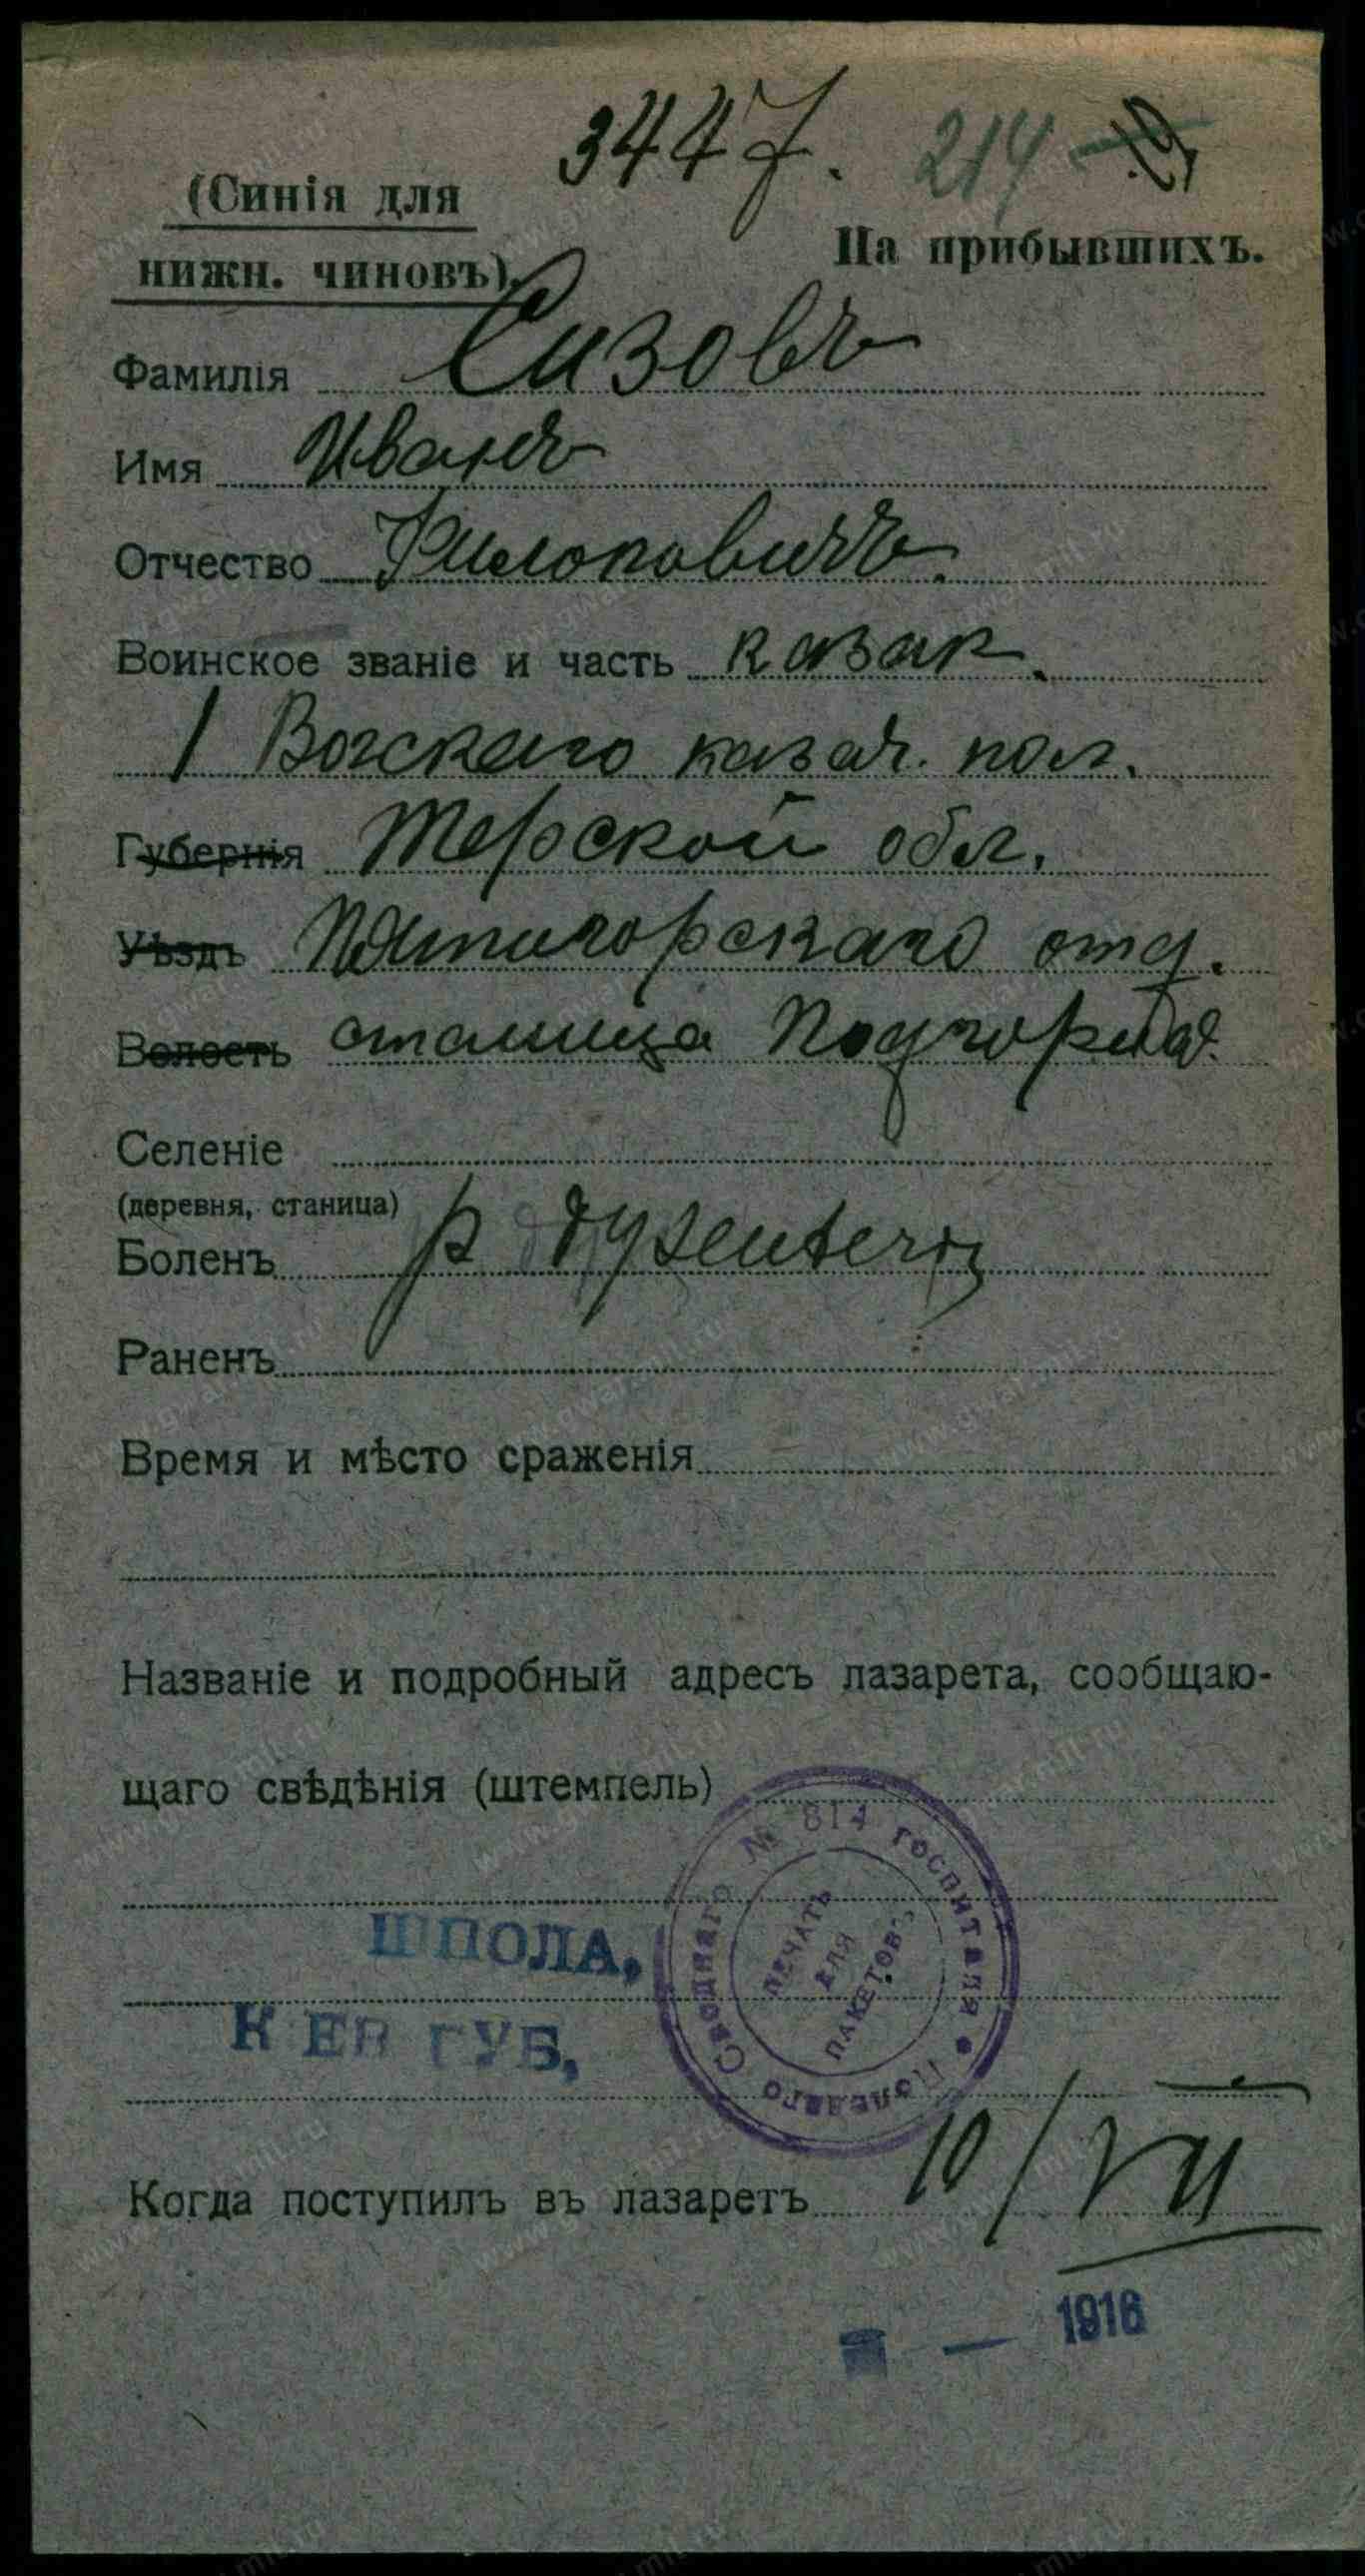 3447. 214
(Синія для
нижн. чиновъ).
На прибывшихъ.
Фамилія Сизовъ
Имя Иванъ
Отчество Филоповичъ.
Воинское званіе и часть казак.
1 Вогскаго казач. пол.
Губернія Терской обл.
Уѣздъ Пятигорскаго отд.
Волость станица Подгорная.
Селеніе
(деревня, станица)
Боленъ p dysenteria
Раненъ
Время и мѣсто сраженія
Названіе и подробный адресъ лазарета, сообщаю-
щаго свѣдѣнія (штемпель)
№ 814 госпиталя • Полевого Своднаго
ПЕЧАТЬ
ДЛЯ
ПАКЕТОВЪ
ШПОЛА,
КІЕВ ГУБ,
Когда поступилъ въ лазаретъ 10/VII
1916